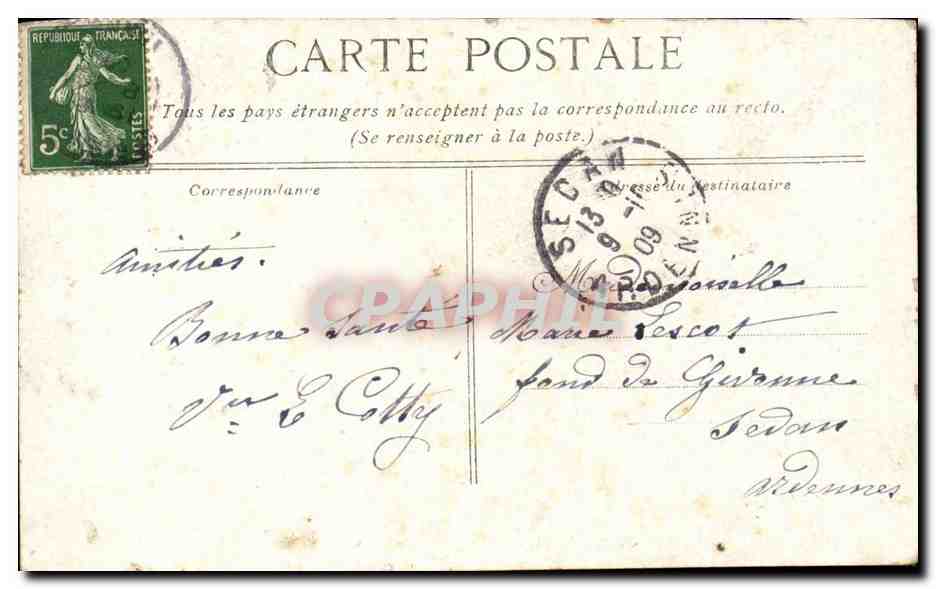 RÉPUBLIQUE FRANÇAISE
5c
POSTES
CARTE POSTALE
Tous les pays étrangers n'acceptent pas la correspondance au recto.
(Se renseigner à la poste.)
Correspondance
Adresse du destinataire
SEDAN
13
9 -10
09
ARDENNES
CPAPHIL
Amitiés.
Bonne Santé
Vve E Cotty
Mademoiselle
Marie Lescot
fond de Givonne
Sedan
Ardennes